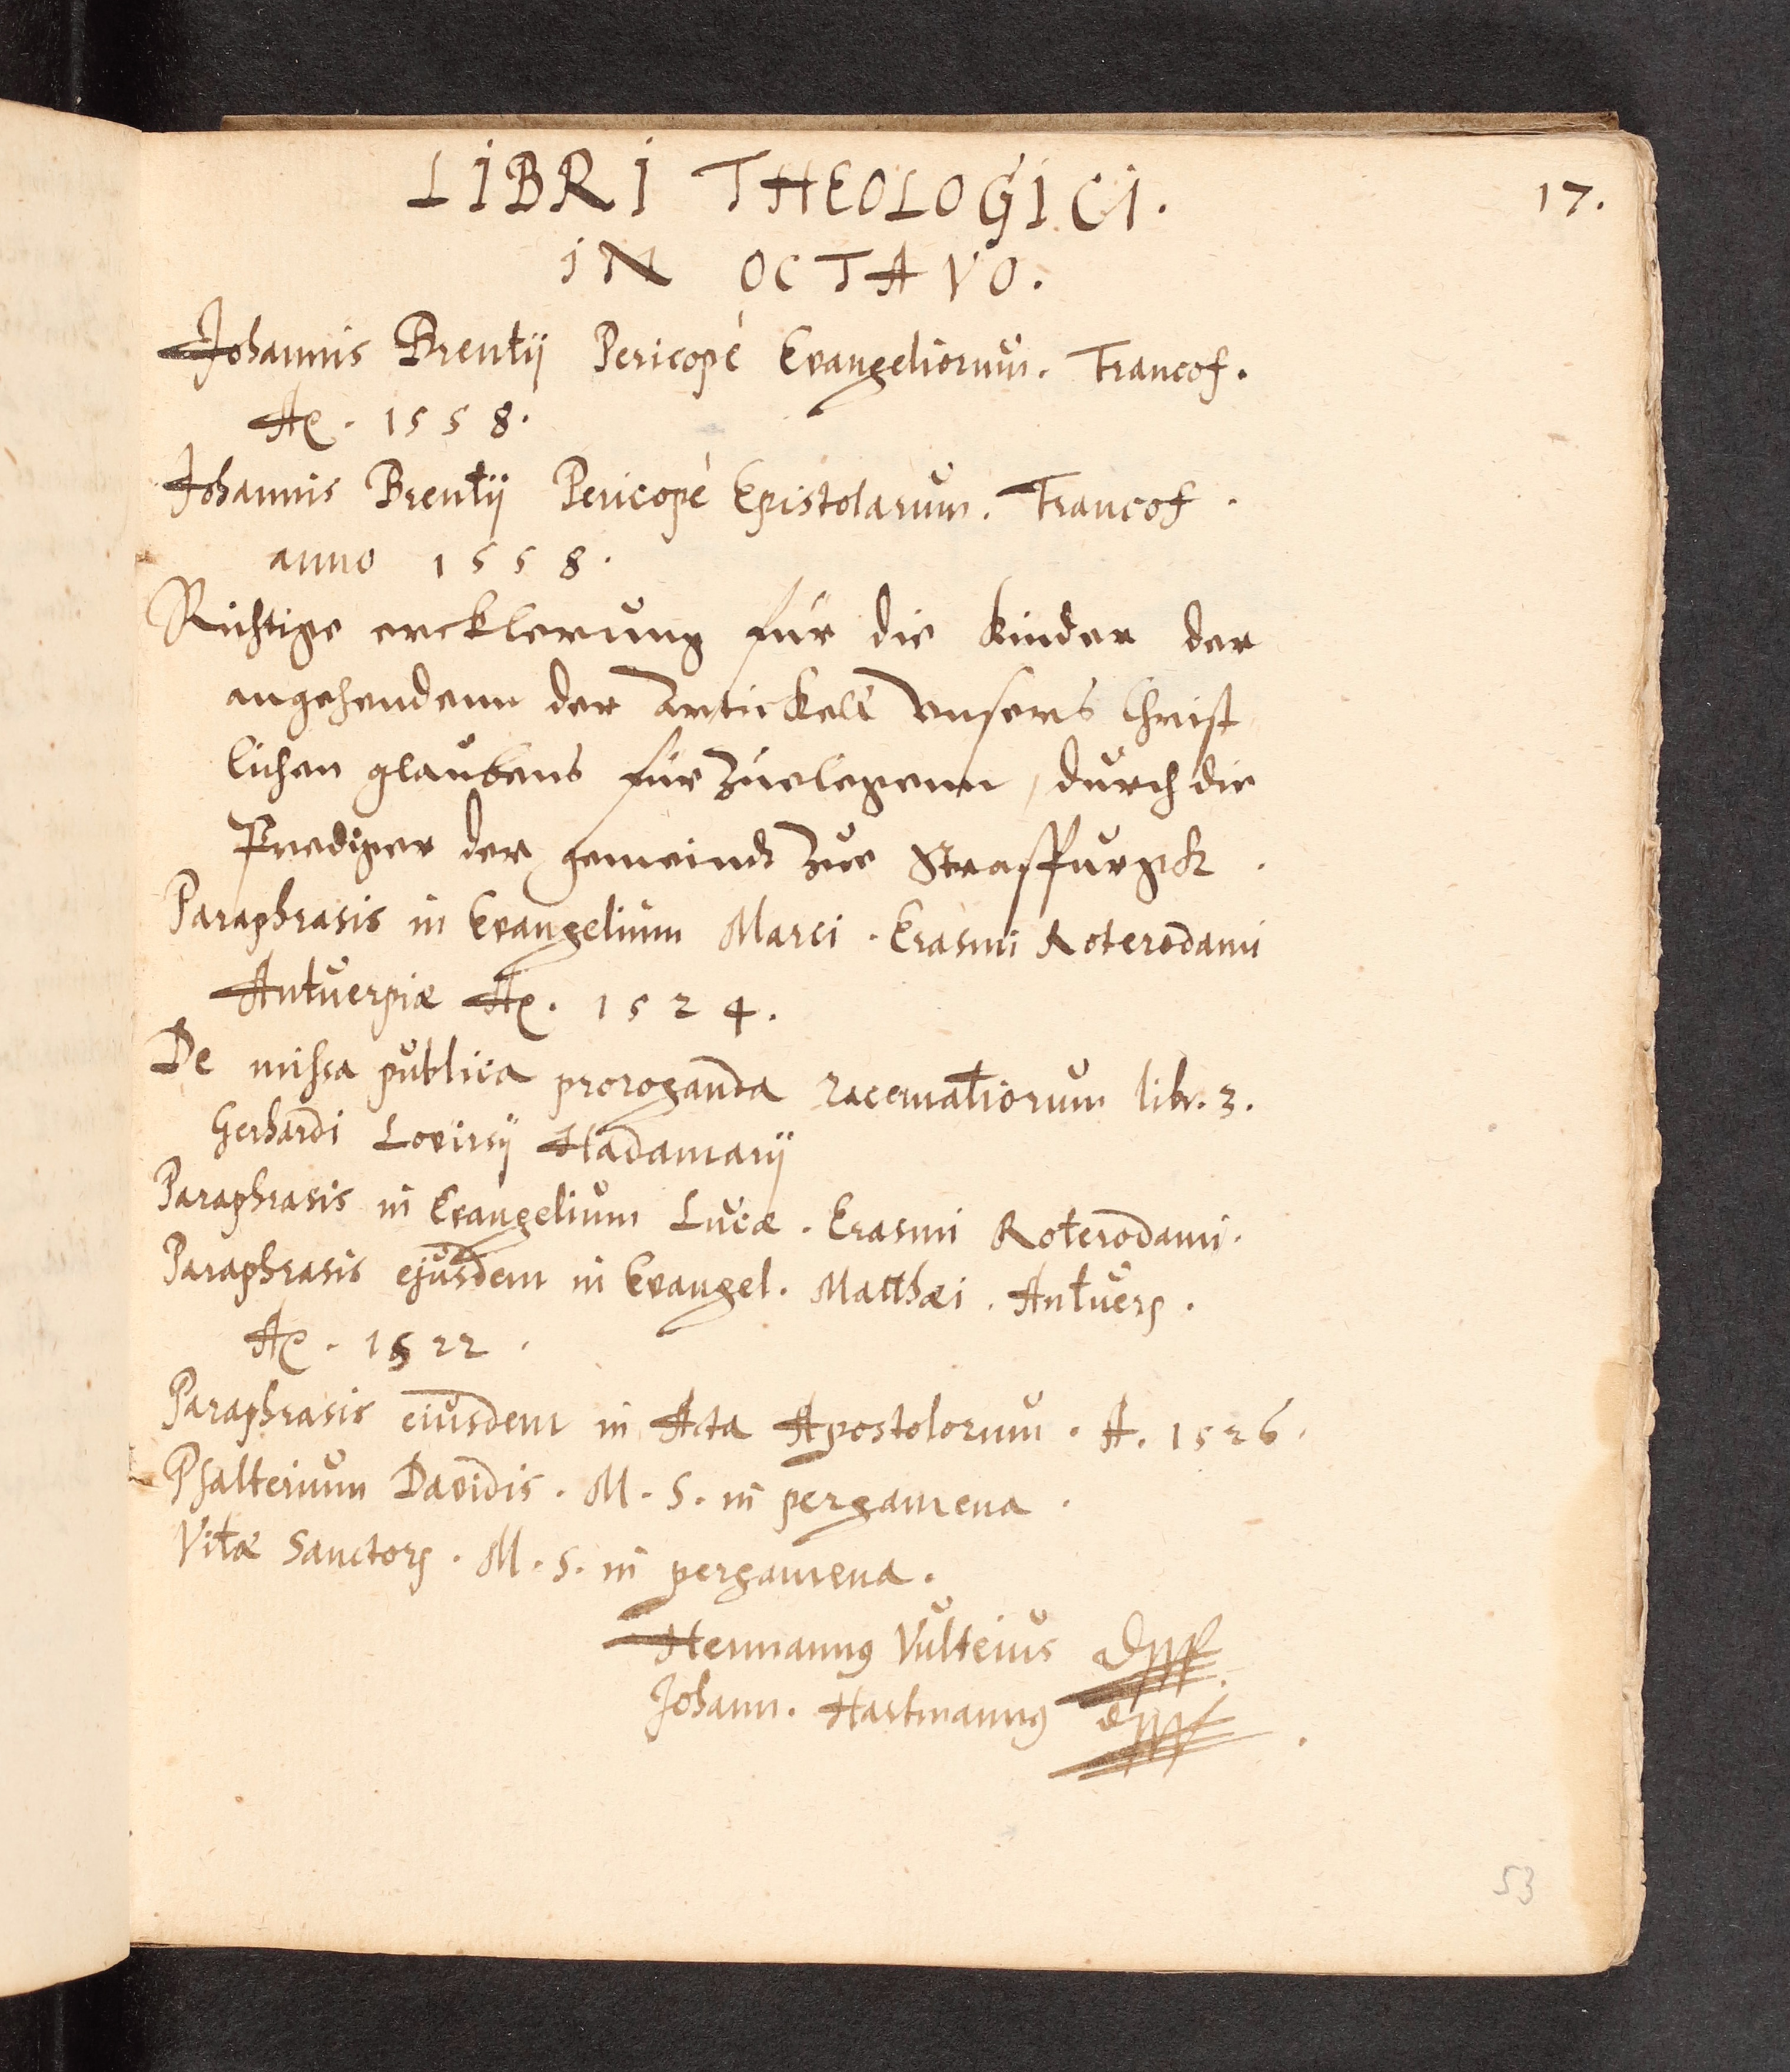 LIBRI THEOLOGICI.
17.
IN OCTAVO.
Johannis Brentij Pericopè Evangeliorum. Francof.
Ao. 1558.
Johannis Brentij Pericopè Epistolarum. Francof.
anno 1558.
Richtige ercklerung für die Kinder der
angehendenn der Artickell unsers Christ
lichen glaubens für zuelegenn, durch die
Prediger der gemeinde zue Strasspurgk.
Paraphrasis in Evangelium Marci. Erasmi Roterodami
Antuerpiæ Ao. 1524.
De missa publica proroganda racemationum lib. 3.
Gerhardi Hadamarij
Paraphrasis in Evangelium Lucæ. Erasmi Roterodami.
Paraphrasis ejusdem in Evangel. Matthæi. Antuerp.
Ao. 1522.
Paraphrasis eiusdem in Acta Apostolorum. A. 1526.
Psalterium Davidis. M. S. in pergamena.
Vitæ Sanctorꝫ. M. S. in pergamena.
Hermannꝰ Vulteius
Johann. Hartmannꝰ
53